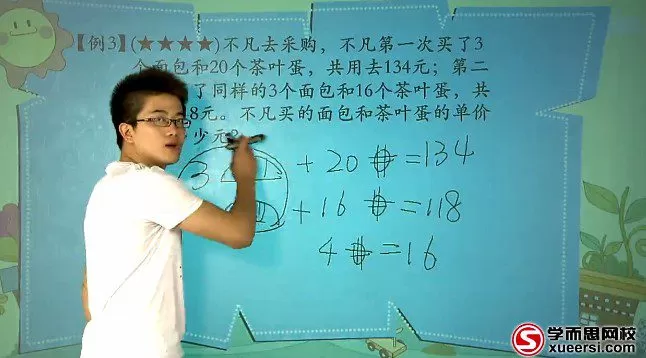 【例3】(★★★★)不凡去采购，不凡第一次买了3
个面包和20个茶叶蛋，共用去134元；第二
了同样的3个面包和16个茶叶蛋，共
8元。不凡买的面包和茶叶蛋的单价
少元？
3 + 20 =134
+ 16 =118
4 =16
学而思网校
xueersi.com